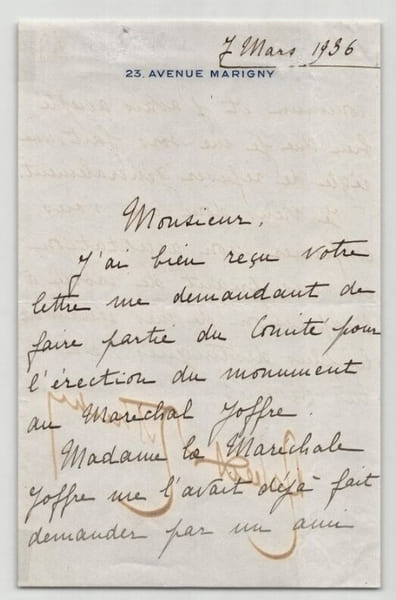 7 Mars 1936
23, AVENUE MARIGNY
Monsieur,
J'ai bien reçu votre
lettre me demandant de
faire partie du Comité pour
l'érection du monument
au Maréchal Joffre.
Madame la Maréchale
Joffre me l'avait déjà fait
demander par un ami